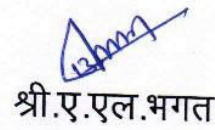 श्री.ए.एल.भगत